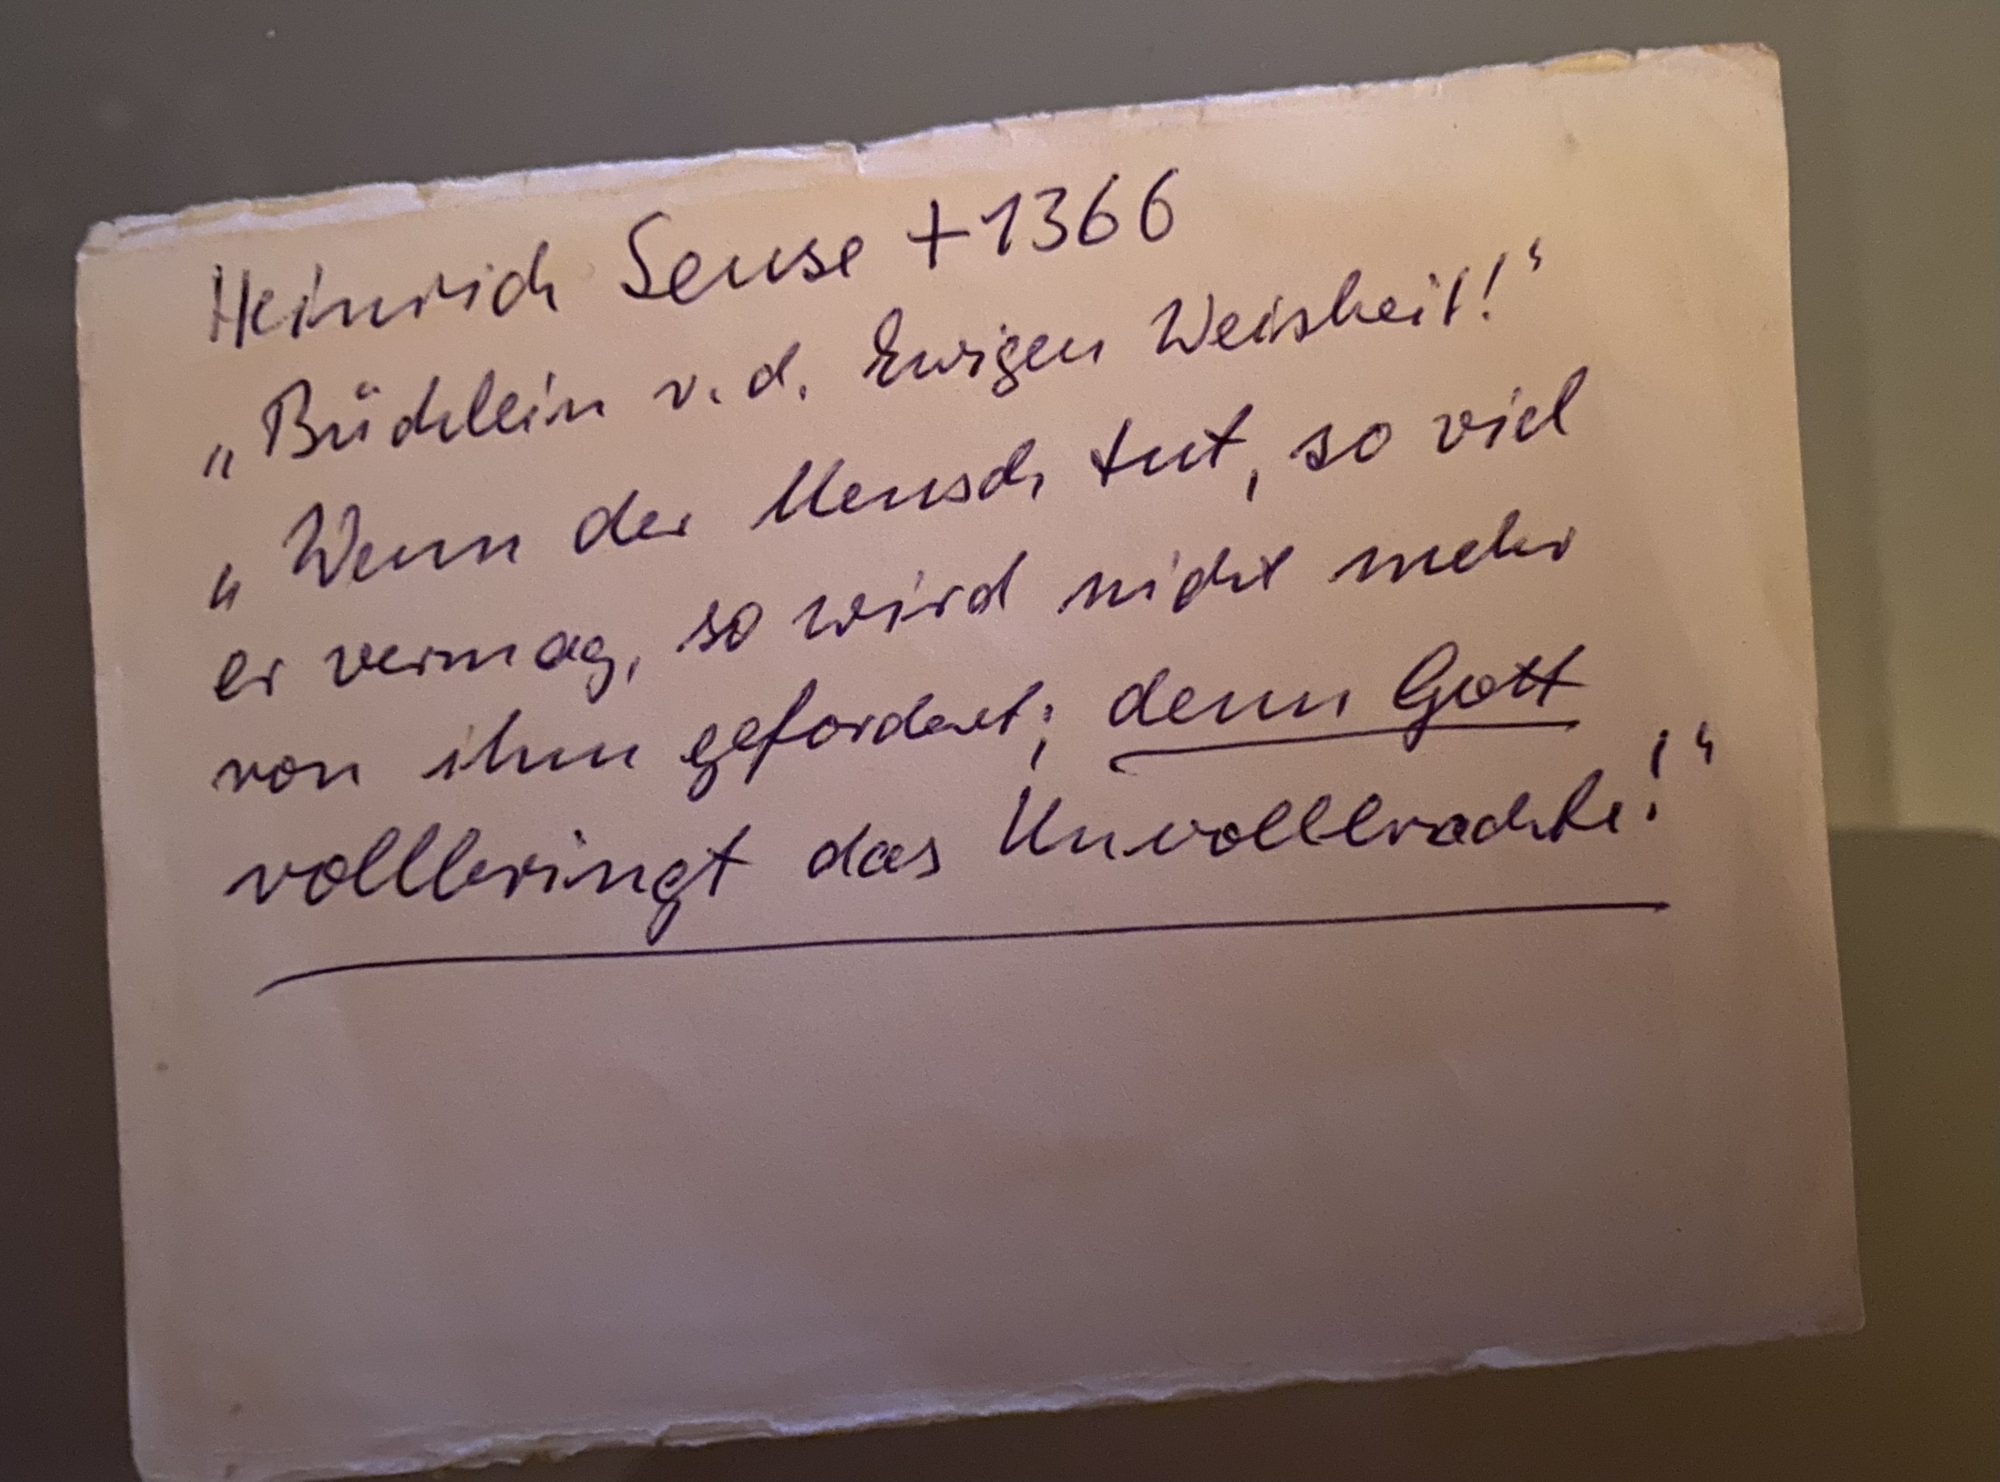 Heinrich Seuse +1366
„Büchlein v. d. Ewigen Weisheit!“
„Wenn der Mensch tut, so viel
er vermag, so wird nicht mehr
von ihm gefordert; denn Gott
vollbringt das Unvollbrachte!“